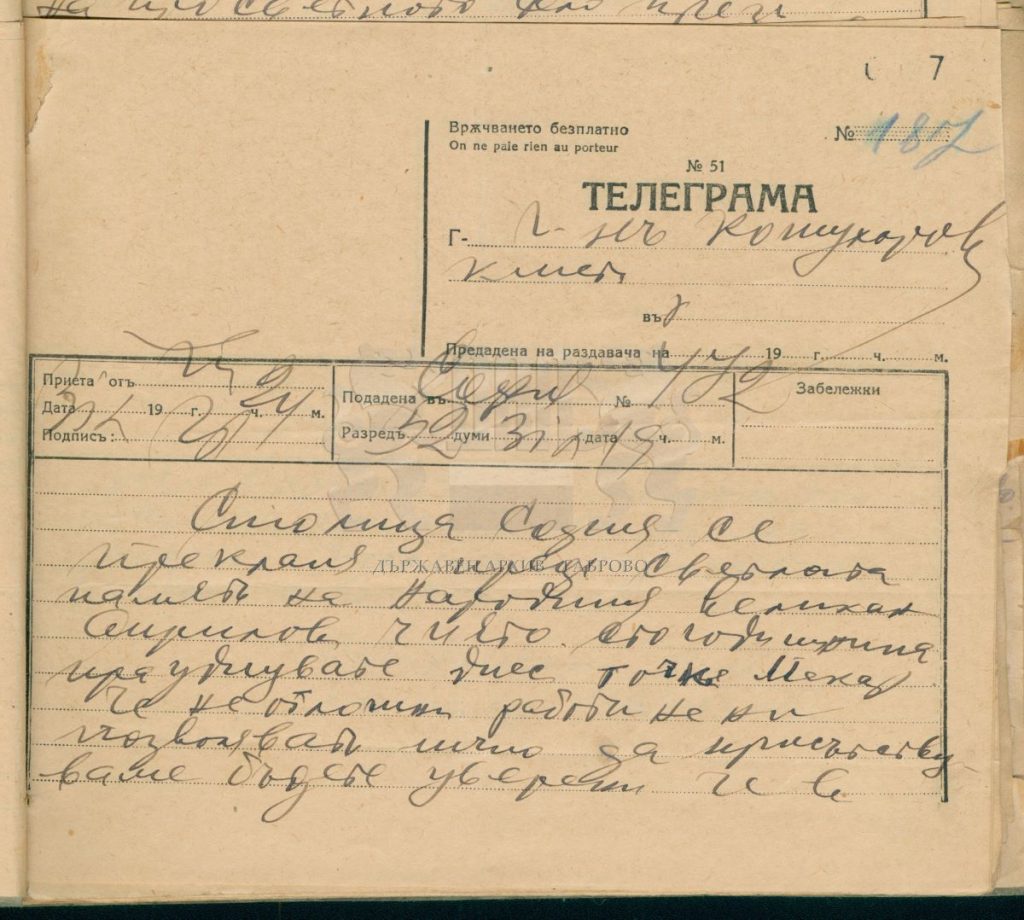 на
7
Врѫчването безплатно
On ne paie rien au porteur
№ 1807
№ 51
ТЕЛЕГРАМА
Г- Г-нъ Кожухаровъ
кметъ
въ
Предадена на раздавача на 19 г. ч. м.
Приета отъ
Дата 19 г. ч. м.
Подписъ:
Подадена въ София №
Разредъ 52 думи 31 дата 19 ч. м.
Забележки
Столица София се
прекланя предъ светлата
паметь на народния великан
Априловъ чиято стогодишнина
празднувате днес точка Мекар
че неотложни работи не ни
позволяватъ лично да присътству-
ваме бъдете уверени че в
ДЪРЖАВЕН АРХИВ ГАБРОВО